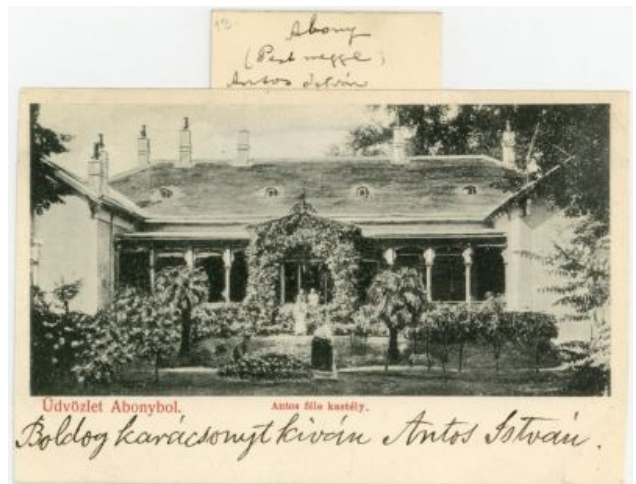 Abony
(Pest megye)
Antos István
Üdvözlet Abonybol.
Antos féle kastély.
Boldog karácsonyt kíván Antos István.